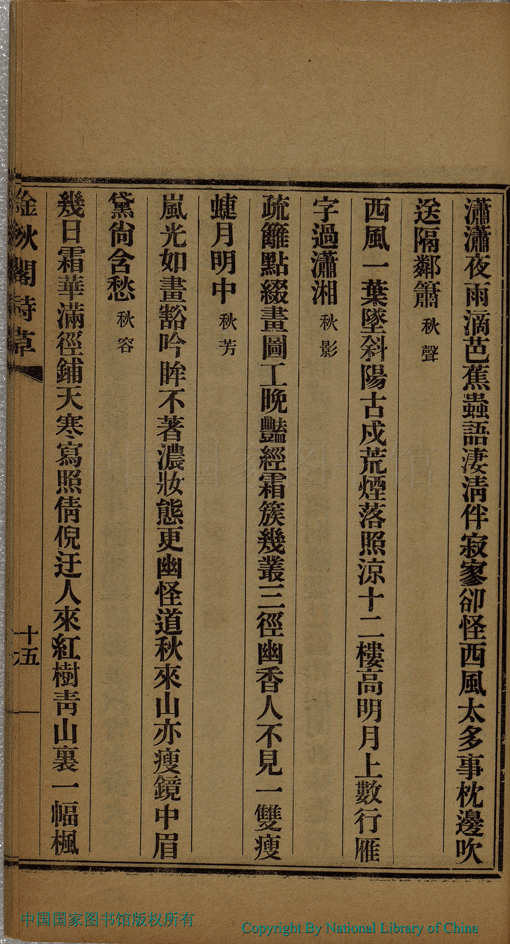 瀟瀟夜雨滴芭蕉蟲語淒淸伴寂寥卻怪西風太多事枕邊吹
送隔鄰簫 秋聲
西風一葉墜斜陽古戍荒煙落照涼十二樓高明月上數行雁
字過瀟湘 秋影
疏籬點綴畫圖工晚豔經霜簇幾叢三徑幽香人不見一雙瘦
蜨月明中 秋芳
嵐光如畫豁吟眸不著濃妝態更幽怪道秋來山亦瘦鏡中眉
黛尙含愁 秋容
幾日霜華滿徑鋪天寒寫照倩倪迂人來紅樹靑山裏一幅楓
秋閣詩草
十五
中国国家图书馆版权所有
Copyright By National Library of China